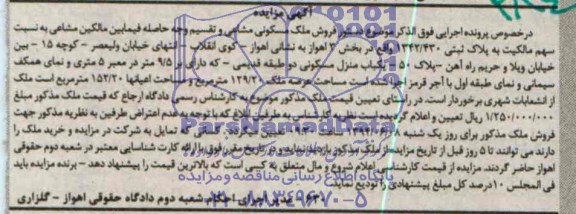 آگهی مزایده
درخصوص پرونده اجرایی فوق الذکر موضوع دستور فروش ملک مسکونی مشاعی و تقسیم وجه حاصله فیمابین مالکین مشاعی به نسبت
سهم مالکیت به پلاک ثبتی ۳۴۲/۴۳۰ واقع در بخش ۳ اهواز به نشانی اهواز - کوی انقلاب - انتهای خیابان ولیعصر - کوچه ۱۵ - بین
خیابان ویلا و حریم راه آهن - پلاک ۵۰ یکباب منزل مسکونی دو طبقه قدیمی - که دارای بر ۹/۵ متر در معبر ۵ متری و نمای همکف
سیمانی و نمای طبقه اول با آجر قرمز اجرا شده است مساحت عرصه ملک ۱۲۹/۳۰ مترمربع و مساحت اعیانها ۱۵۲/۲۰ مترمربع است ملک
از انشعابات شهری برخوردار است. در راستای تعیین قیمت ملک مذکور موضوع به کارشناس رسمی دادگاه ارجاع که قیمت ملک مذکور مبلغ
۱/۲۵۰/۰۰۰/۰۰۰ ریال تعیین و اعلام گردیده است نظریه کارشناس به طرفین ابلاغ که با توجه به عدم اعتراض طرفین به نظریه مذکور جهت
فروش ملک مذکور برای روز یک شنبه تعیین کسانی که تمایل به شرکت در مزایده و خرید ملک را
دارند می توانند تا ۵ روز قبل از تاریخ مزایده از ملک مذکور بازدید نمایند و در تاریخ مقرر فوق با ارائه کارت شناسایی معتبر در شعبه دوم حقوقی
اهواز حاضر گردند. مزایده از قیمت کارشناسی اعلام شروع و مال متعلق به کسی است که بالاترین قیمت را پیشنهاد دهد - برنده مزایده باید
فی المجلس ۱۰درصد کل مبلغ پیشنهادی را تودیع نماید
مدیر اجرای احکام شعبه دوم دادگاه حقوقی اهواز - گلزاری
ParsNamadData
پایگاه اطلاع رسانی مناقصه و مزایده